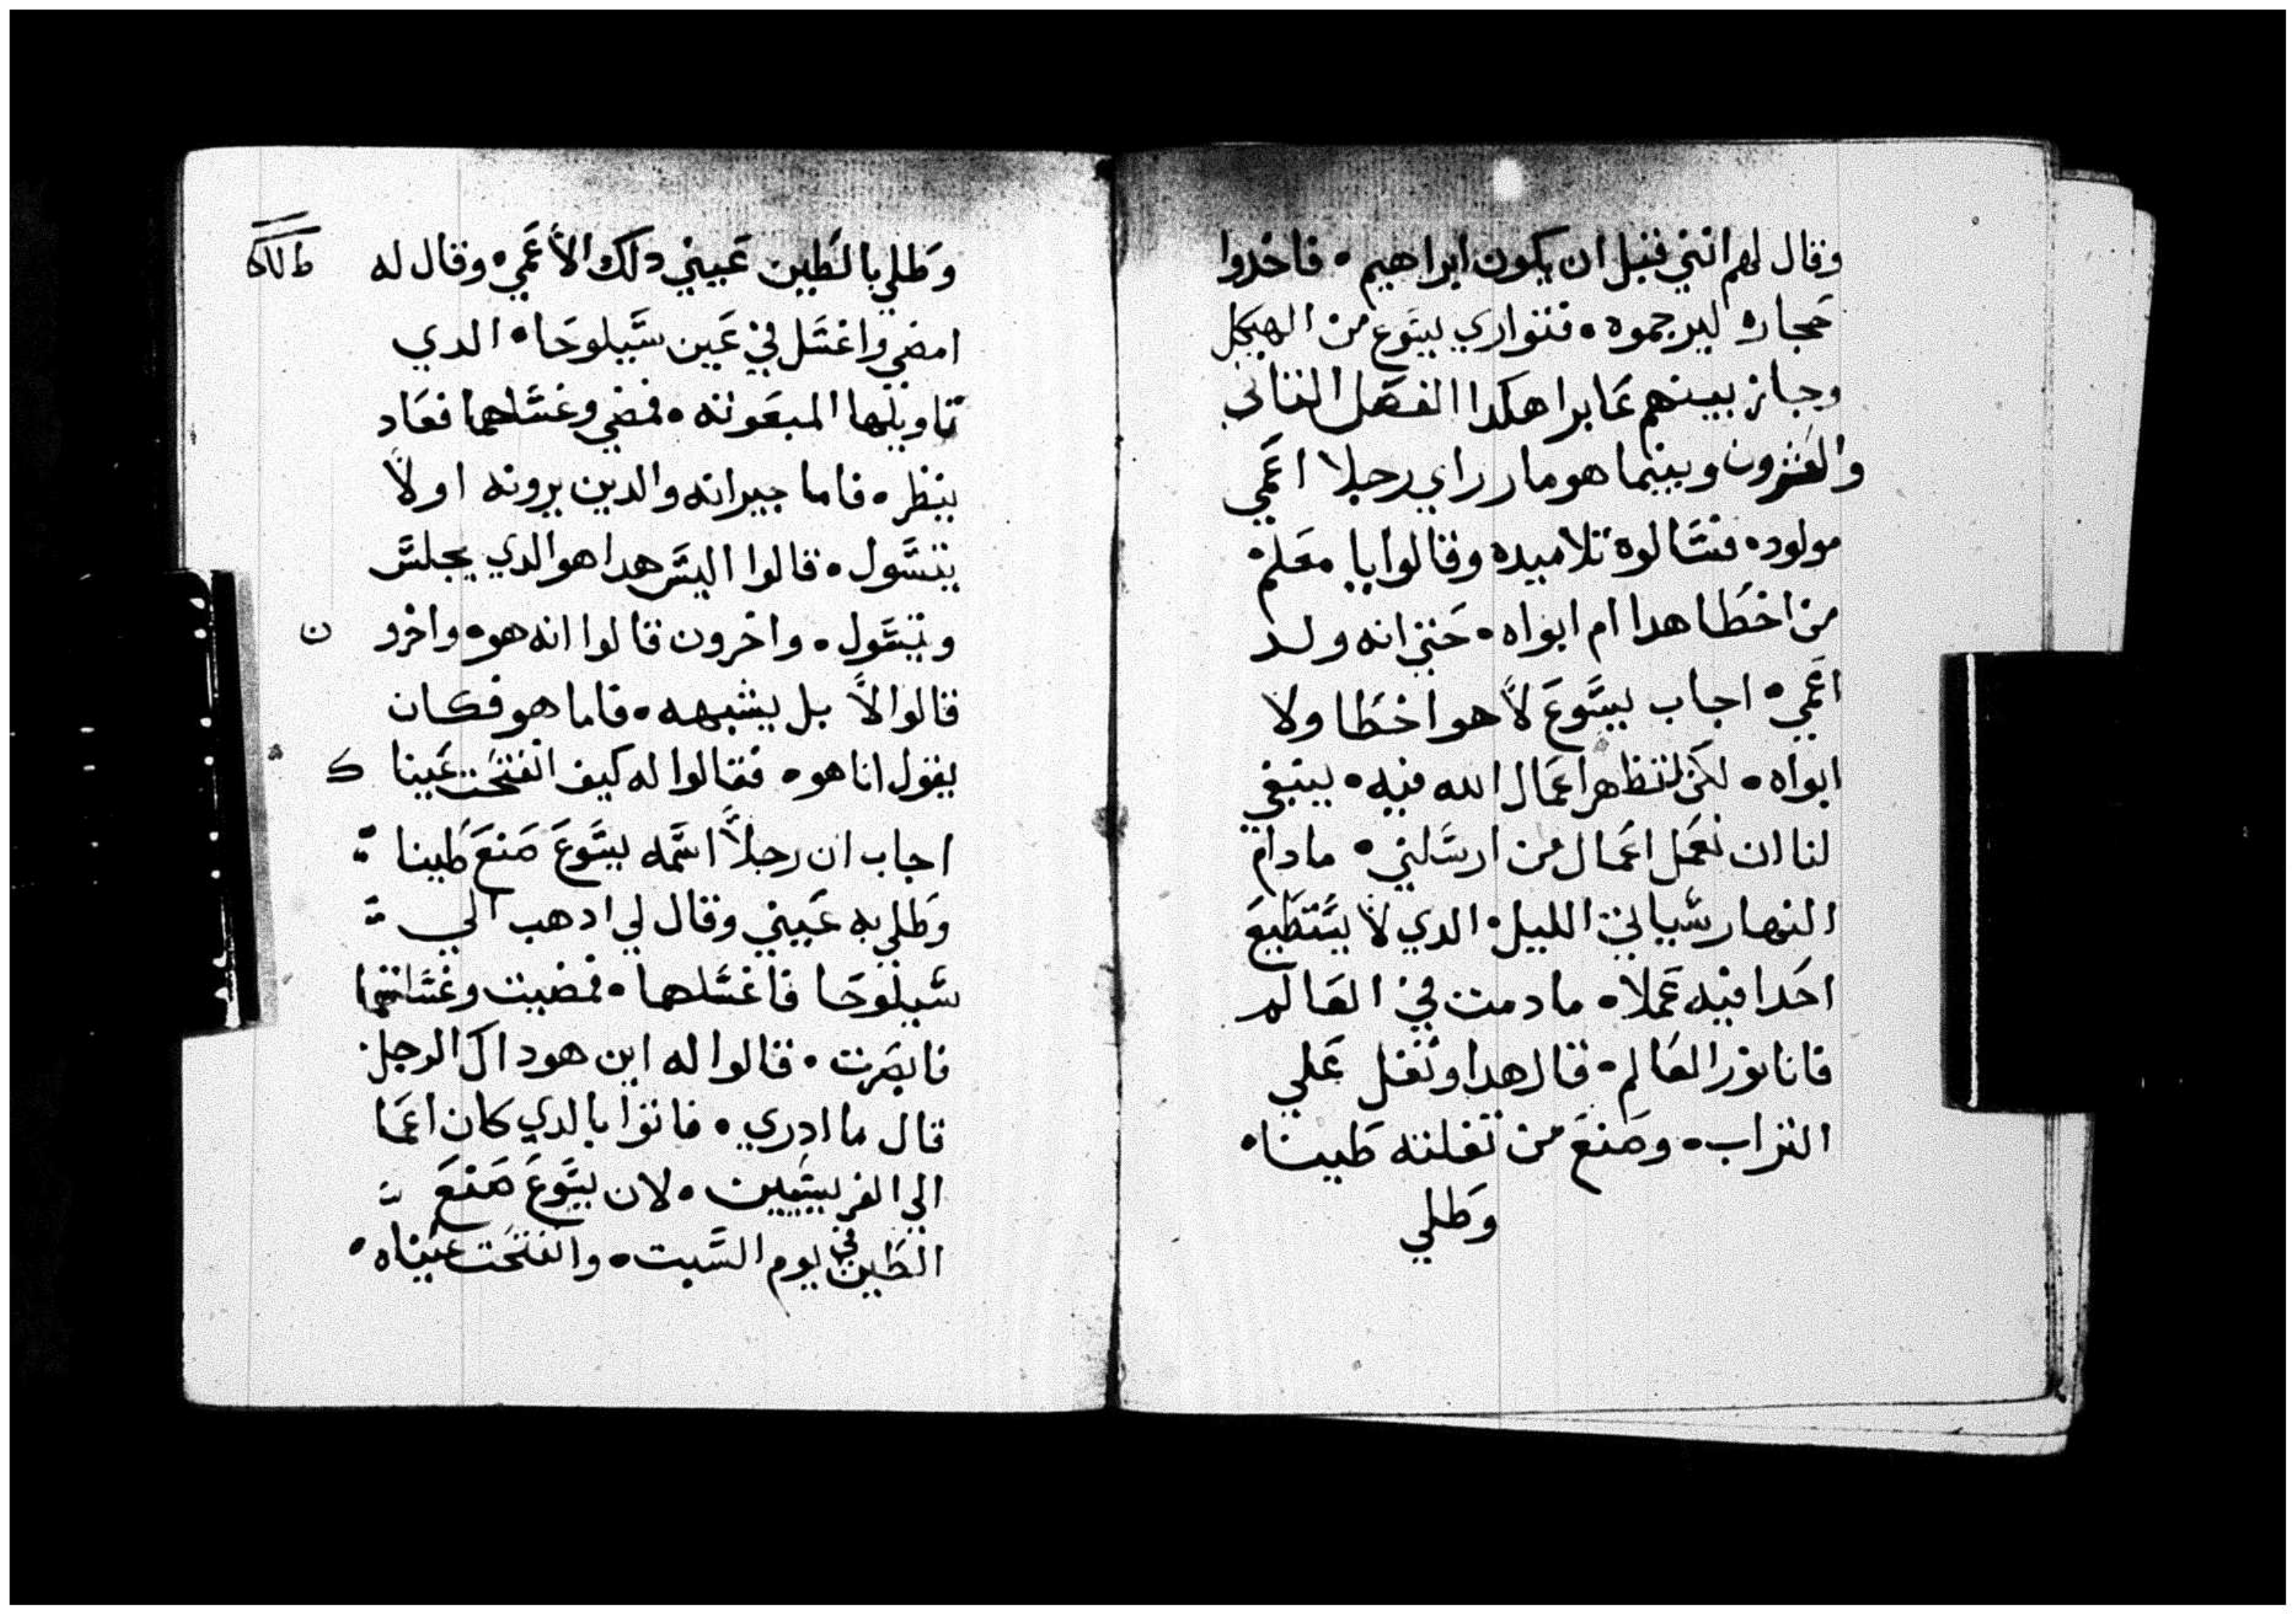 وقال لهم انني قبل ان يكون ابراهيم • فاخدوا
حجاره ليرجموه • فتواري يسوع من الهيكل
وجاز بينهم عابرا هكدا الفصل الثاني
والعشرون وبينما هو مار راي رجلا اعمي
مولود • فسالوه تلاميده وقالوا يا معلم
من اخطا هدا ام ابواه • حتي انه ولد
اعمي • اجاب يسوع لا هو اخطا ولا
ابواه • لكن لتظهر اعمال الله فيه • ينبغي
لنا ان نعمل اعمال من ارسلني • مادام
النهار سياتي الليل • الدي لا يستطيع
احدا فيه عملا • مادمت في العالم
فانا نور العالم • قال هدا وتفل علي
التراب • وصنع من تفلته طينا •
وطلي
وطلي بالطين عيني دلك الاعمي • وقال له
امضي واغسل في عين سيلوحا • الدي
تاويلها المبعوته • فمضي وغسلهما فعاد
ينظر • فاما جيرانه والدين يرونه اولا
يتسول • قالوا اليس هدا هو الدي يجلس
ويتسول • واخرون قالوا انه هو • واخرو ن
قالوا لا بل يشبهه • فاما هو فكان
يقول انا هو • فقالوا له كيف انفتحت عينا ك
اجاب ان رجلا اسمه يسوع صنع طينا
وطلي به عيني وقال لي ادهب الي
سيلوحا فاغسلها • فمضيت وغسلتهما
فابصرت • قالوا له اين هو داك الرجل
قال ما ادري • فاتوا بالدي كان اعما
الي الفريسيين • لان يسوع صنع
الطين في يوم السبت • وانفتحت عيناه •